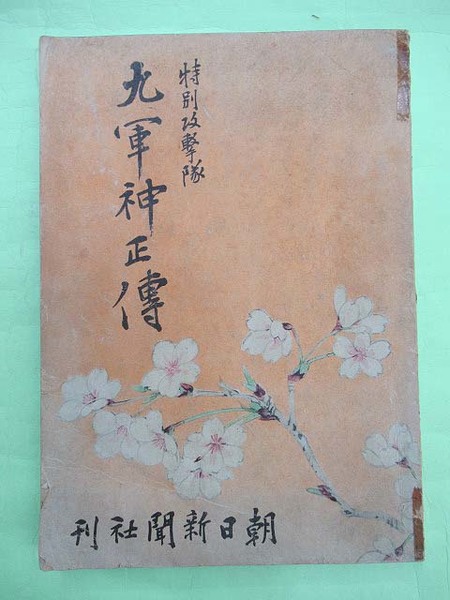 特別攻撃隊
九軍神正傳
朝日新聞社刊